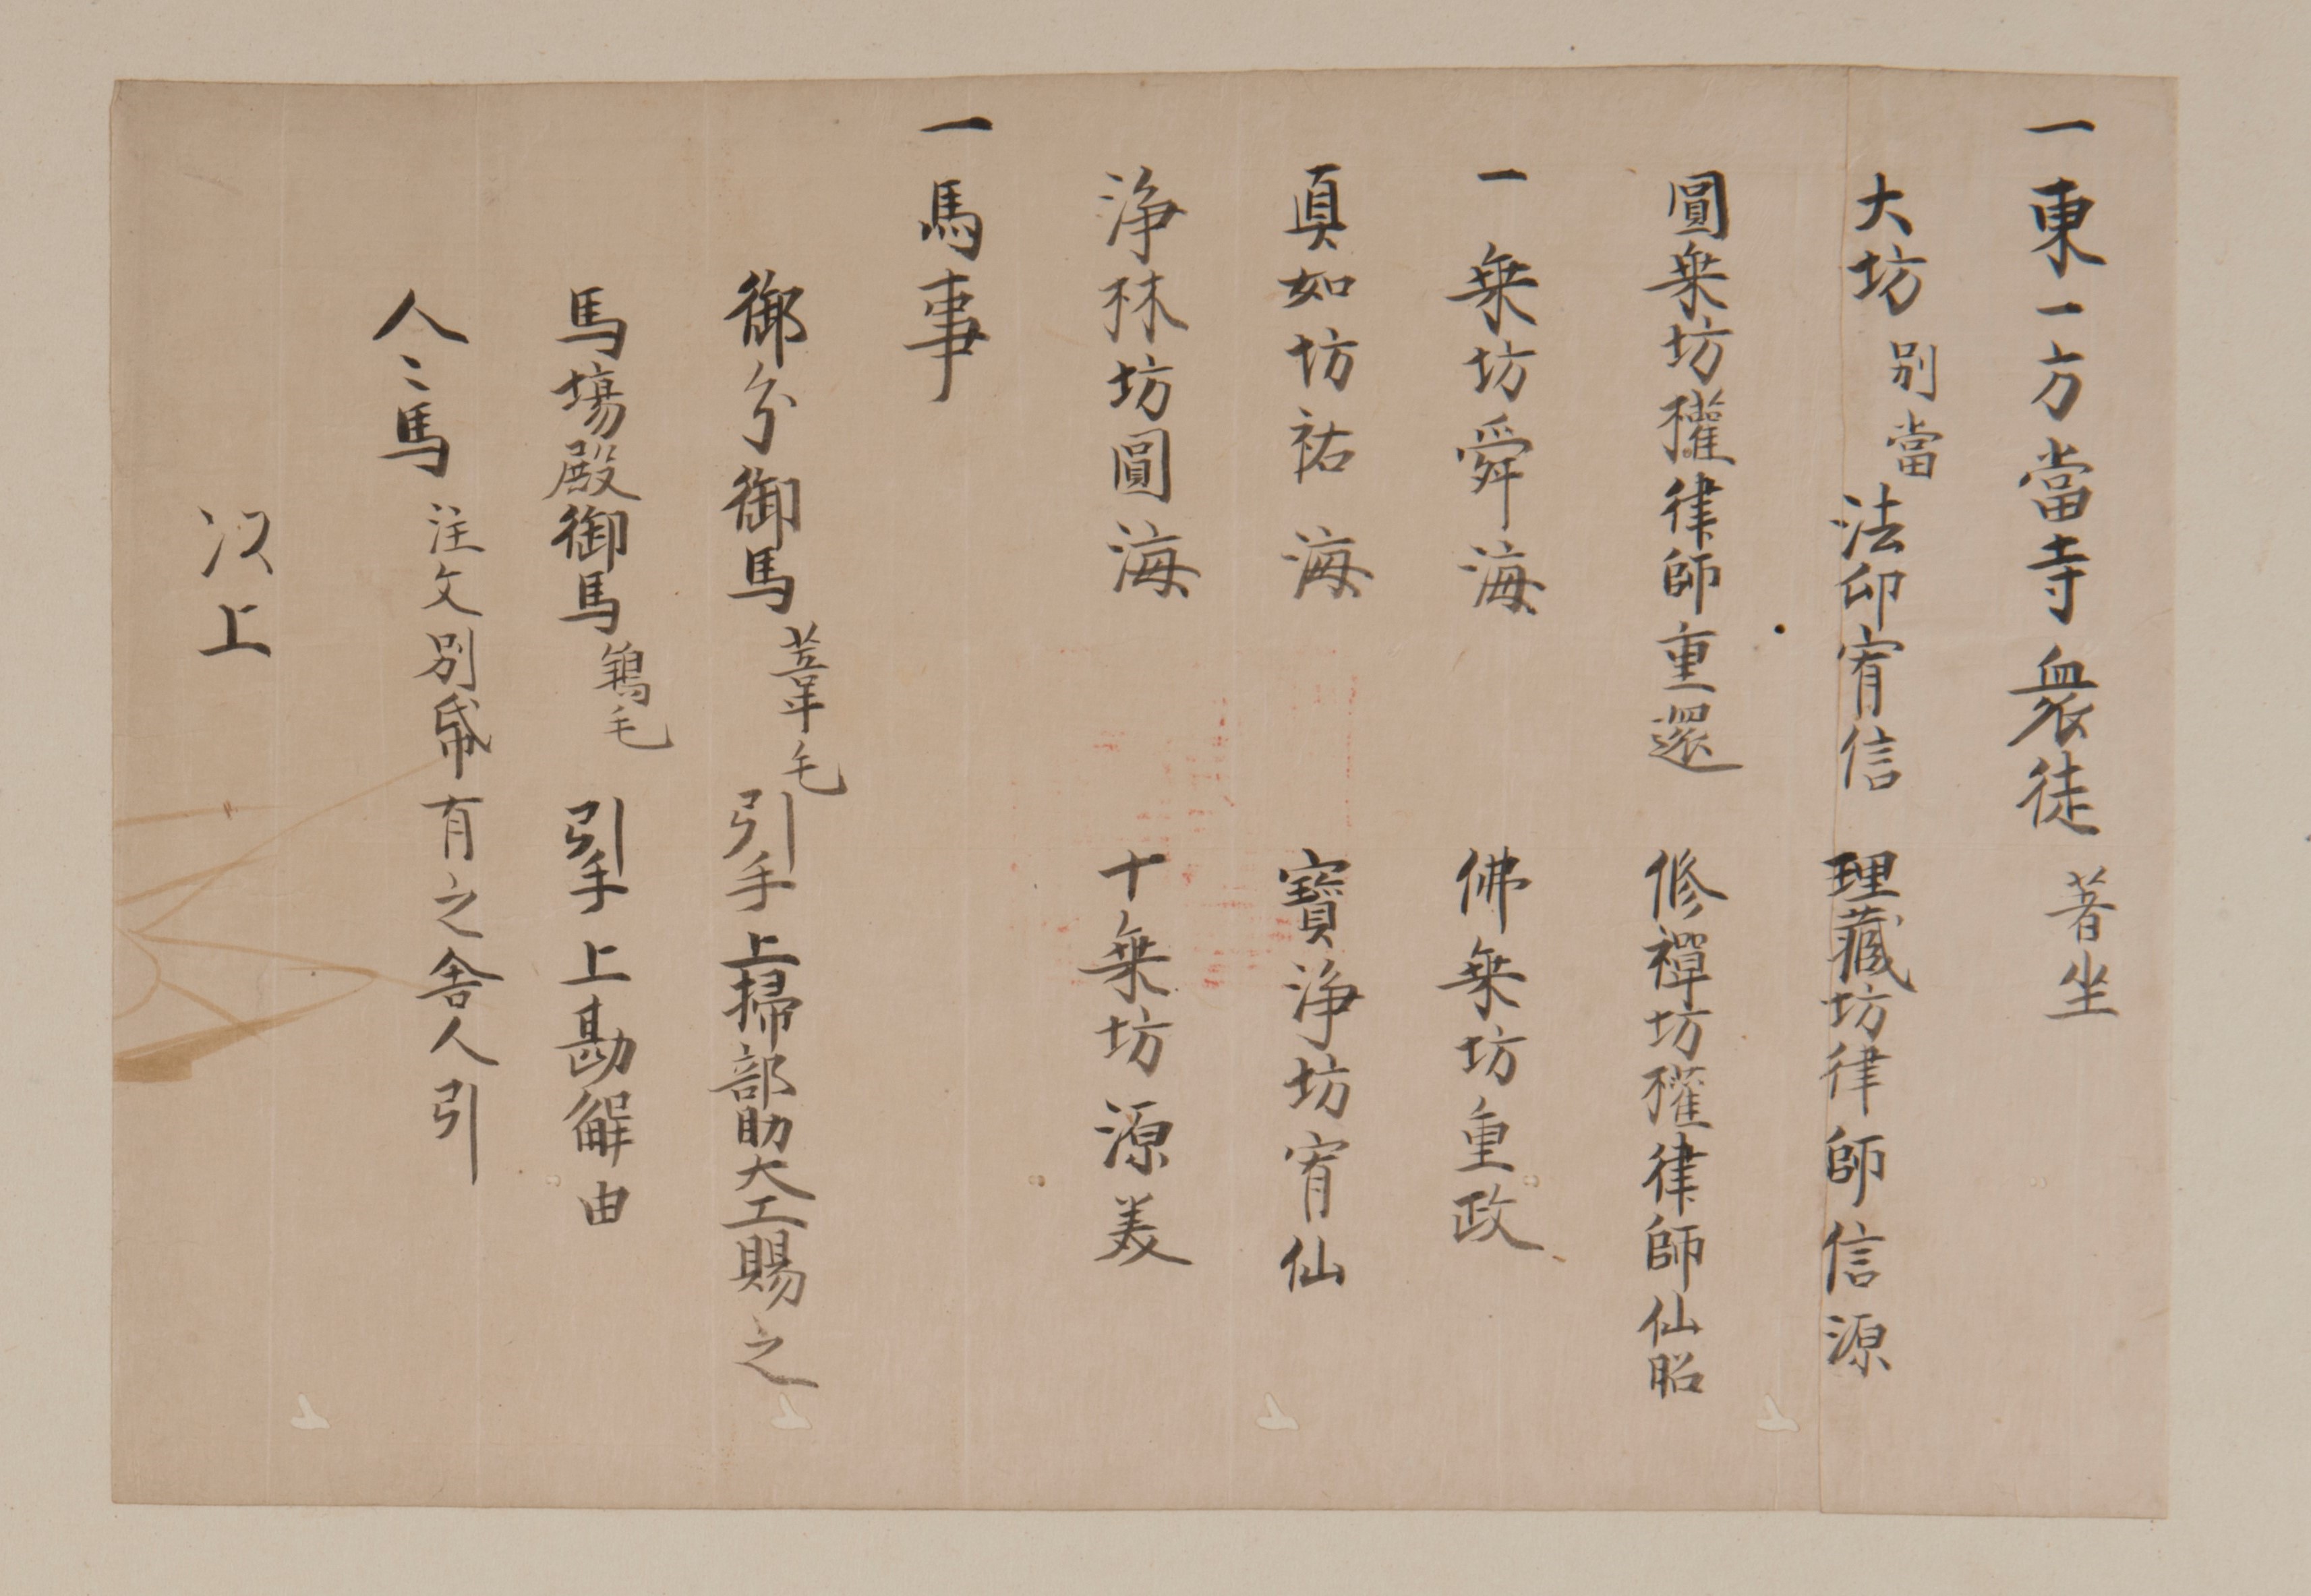 一東一方當寺衆徒 著坐
大坊 別當 法印宥信 理藏坊律師信源
圓乗坊權律師重還 修禪坊權律師仙昭
一乗坊舜海 佛乗坊重政
真如坊祐海 寶浄坊宥仙
浄林坊圓海 十乗坊源美
一馬事
御分御馬 葦毛 引手上掃部助大工賜之
馬場殿御馬 鵇毛 引手上勘解由
人〻馬 注文別帋有之舎人引
以上